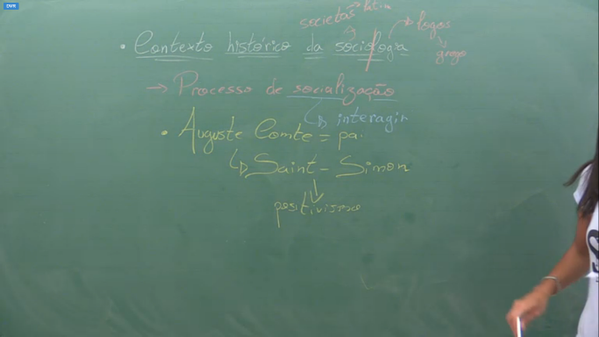 DVR
societas → latim
→ logos
grego
• Contexto histórico da sociologia
→ Processo de socialização
↳ interagir
• Auguste Comte = pai
↳ Saint-Simon
positivismo